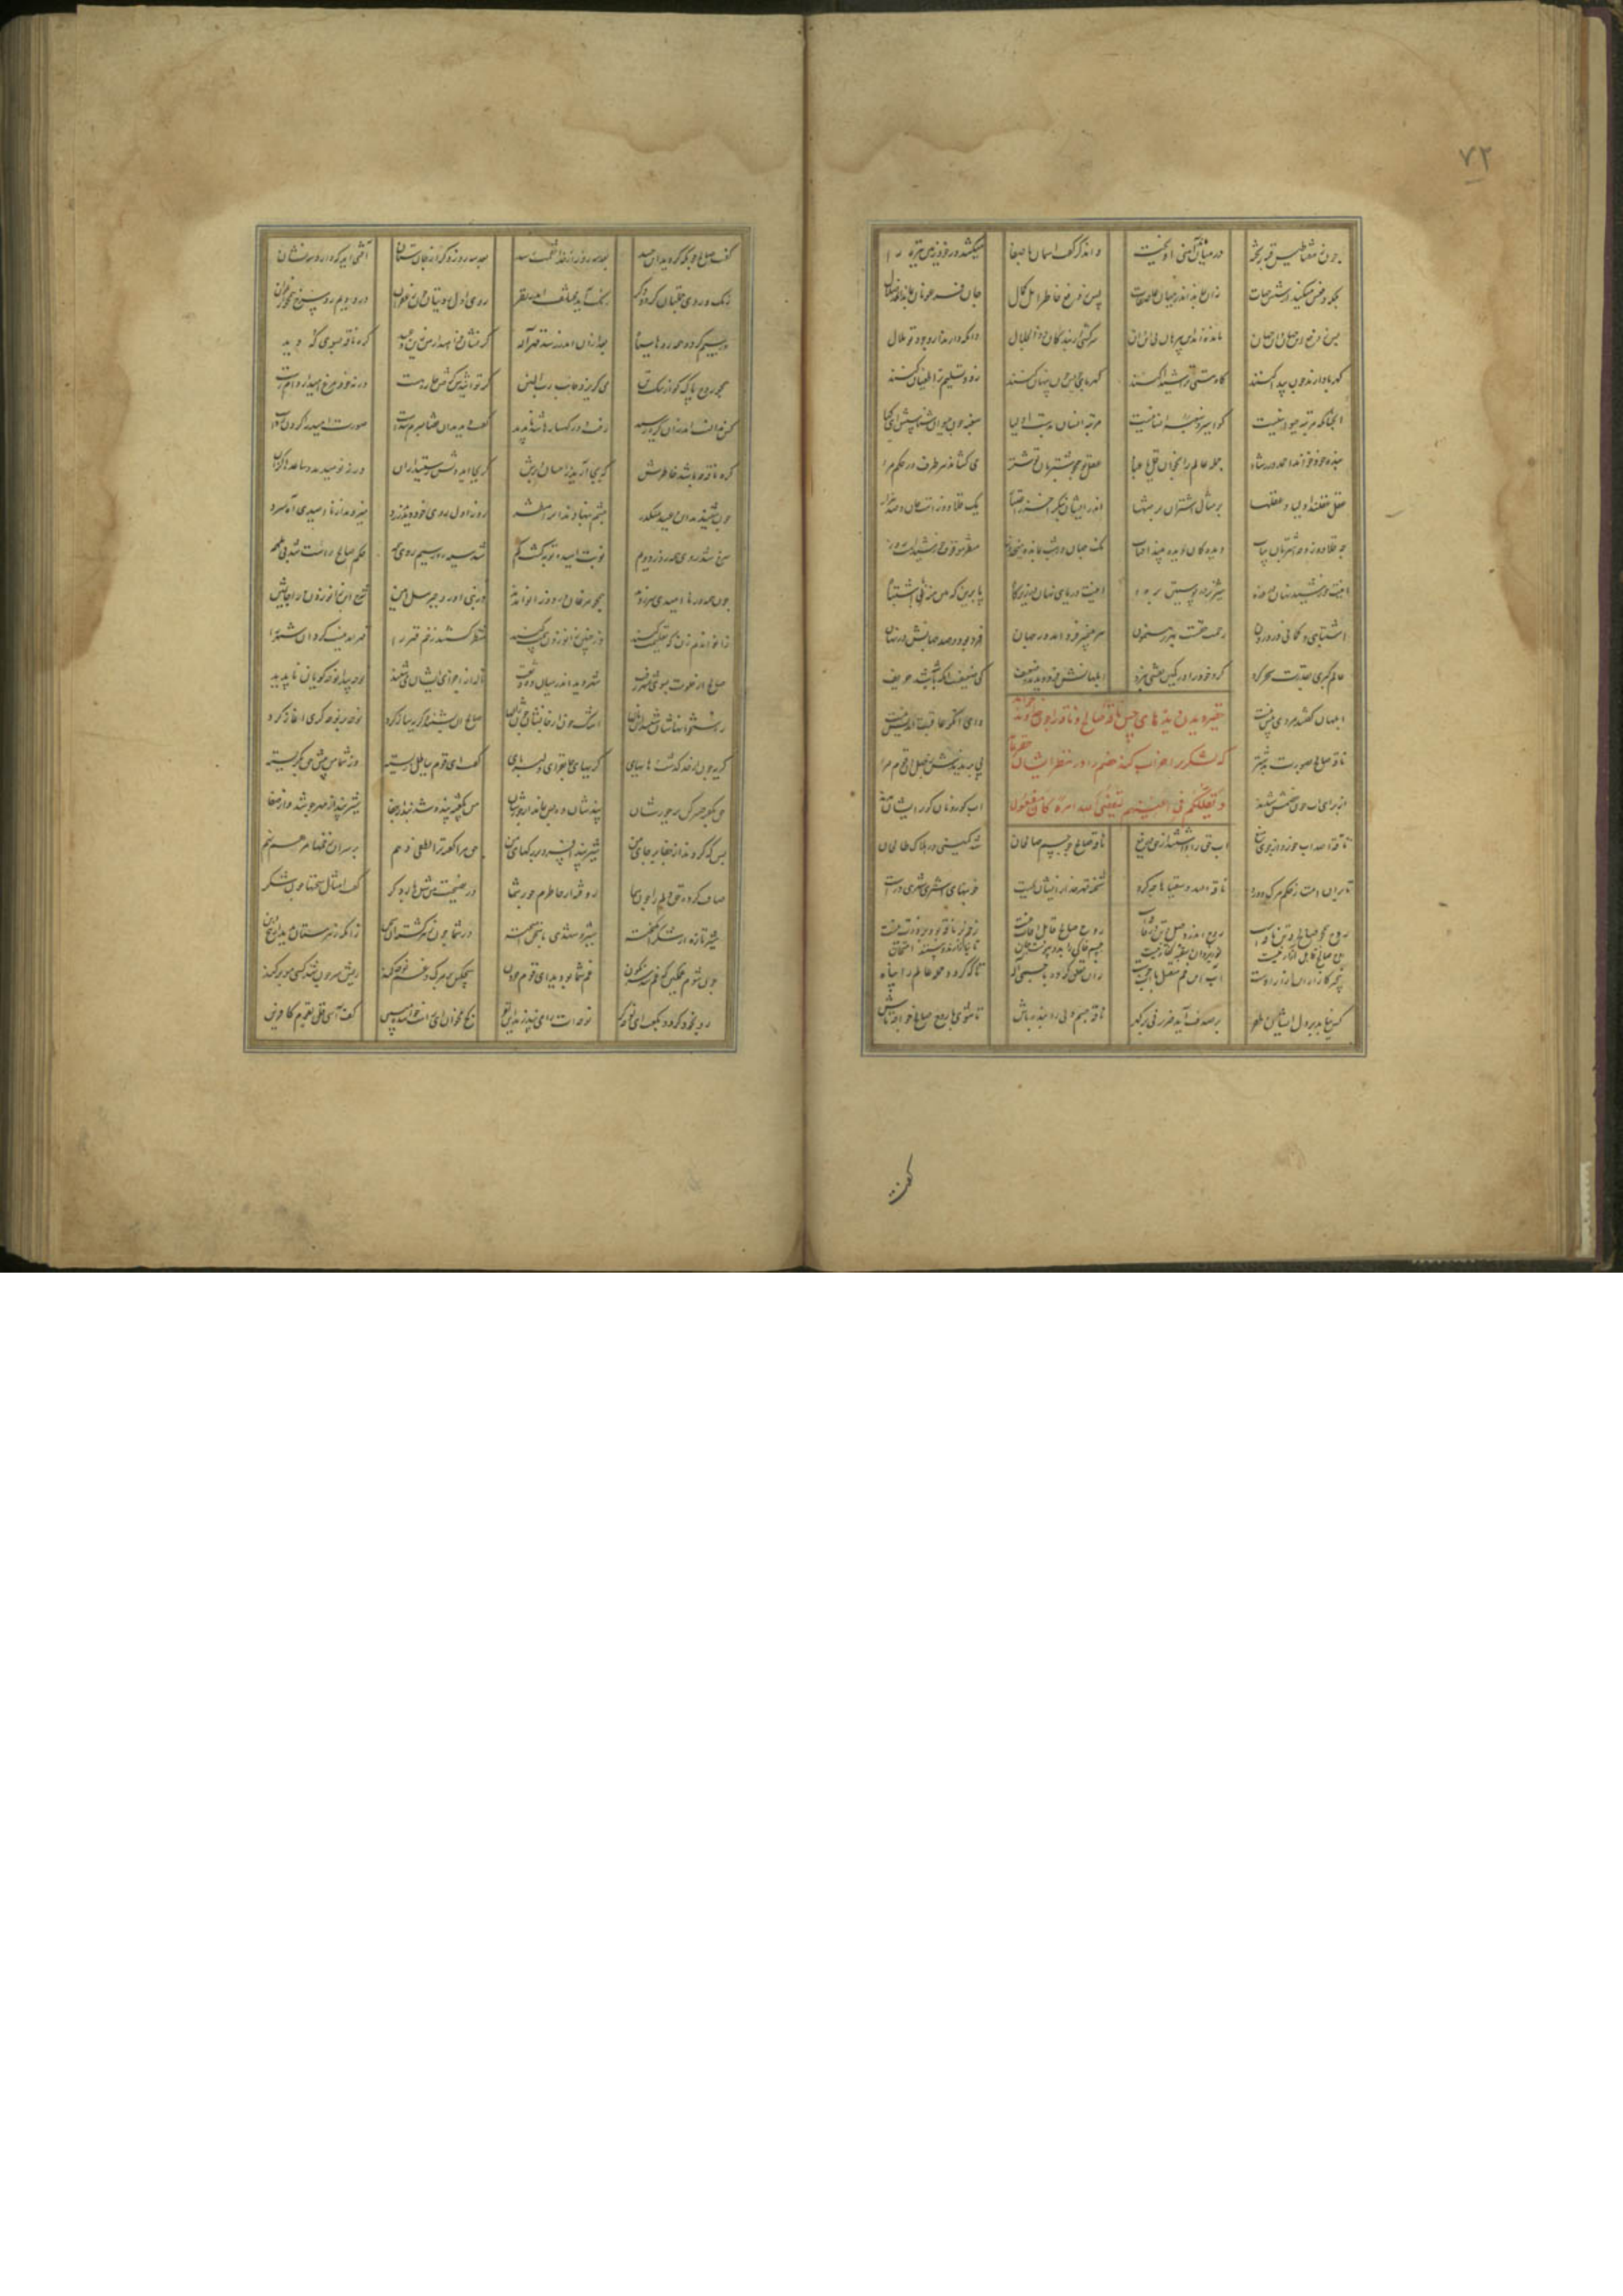 ۷۲
چون مغناطیس قبه ریخته در میان آهنی آویخته و آن دگر گفت آسمان با صفا میکشد در خود زمین تیره را
بلکه دفعش میکند از شش جهات زان بماند اندر میان عاصفات پس ز دفع خاطر اهل کمال جان فرعونان بماند اندر ضلال
پس ز دفع این جهان و آن جهان مانده‌اند این بی‌رهان بی این و آن سرکشی از بندگان ذوالجلال دانکه دارند از وجود تو ملال
کهربا دارند چون پیدا کنند کاه هستی ترا شیدا کنند کهربای خویش چون پنهان کنند زود تسلیم ترا طغیان کنند
آنچنانکه مرتبه حیوانیست کو اسیر و سغبه انسانیست مرتبه انسان بدست اولیا سغبه چون حیوان شناسش ای کیا
بنده خود خواند احمد در رشاد جمله عالم را بخوان قل یا عباد عقل تو همچون شتربان تو شتر می کشاند هر طرف در حکم مر
عقل عقلند اولیا و عقلها بر مثال اشتران تا انتها اندر ایشان بنگر آخر ز اعتبار یک قلاوزست جان صد هزار
چه قلاوز و چه اشتربان بیاب دیده کان دیده بیند آفتاب نک جهان در شب بمانده میخ دوز منتظر موقوف خورشیدست روز
اینت خورشید نهان در ذره شیر نر در پوستین بره اینت دریای نهان در زیر کاه پا برین که هین منه در اشتباه
اشتباهی و گمانی در درون رحمت حقست بهر رهنمون هر پیمبر فرد آمد در جهان فرد بود و صد جهانش در نهان
عالم کبری بقدرت سحر کرد کرد خود را در کهین نقشی نورد ابلهانش فرد دیدند و ضعیف کی ضعیفست آنکه با شه شد حریف
ابلهان گفتند مردی بیش نیست وای آنکو عاقبت اندیش نیست
حقیر دیدن دیدهای حس ناقه صالح و ناقه را چون خواهد
که لشکر را خراب کند خصم را در نظر ایشان حقیر نماید
و یقللکم فی اعینهم لیقضی الله امرا کان مفعولا
ناقه صالح بصورت بد شتر پی بریدندش ز جهل آن قوم مر
از برای آب چون خصمش شدند آب کور و نان کور ایشان بدند
ناقة الله آب خورد از جوی میغ آب حق را داشتند از حق دریغ ناقه صالح چو جسم صالحان شد کمینی در هلاک طالحان
تا بر آن امت ز حکم مرگ و درد ناقة الله و سقیاها چه کرد شحنه قهر خدا زیشان بجست خونبهای اشتری شهری درست
روح همچو صالح و تن ناقه است روح اندر وصل و تن در فاقه است روح صالح قابل آفات نیست زخم بر ناقه بود بر ذات نیست
روح صالح قابل آزار نیست نور یزدان سغبه کفار نیست جسم خاکی را بدو پیوست جان تا بیازارند و بینند امتحان
بیخبر کازار این آزار اوست آب این خم متصل با آب جوست زان تعلق کرد با جسمی اله تا که گردد جمله عالم را پناه
کس نیابد بر دل ایشان ظفر بر صدف آید ضرر نی بر گهر ناقه جسم ولی را بنده باش تا شوی با روح صالح خواجه تاش
گفت
گفت صالح چونکه کردید این حسد بعد سه روز از خدا نقمت رسد بعد سه روز دگر از جان ستان آفتی آید که دارد سه نشان
رنگ روی جملتان گردد دگر رنگ رنگ مختلف اندر نظر روز اول رویتان چون زعفران در دوم رو سرخ همچون ارغوان
در سیم گردد همه روها سیاه بعد از آن اندر رسد قهر اله گر نشان خواهید از من زین وعید کره ناقه بسوی که دوید
گر توانیدش گرفتن چاره هست ورنه خود مرغ امید از دام جست
کس نتانست اندر آن کره رسید رفت در کهسارها شد ناپدید
همچو روح پاک کو از ننگ تن می گریزد جانب رب المنن گفت دیدیت آن قضا مبرم شدست صورت امید را گردن زدست
کره ناقه چه باشد خاطرش که بجا آرید ز احسان و برش گر بجا آید دلش رستید از آن ورنه نومیدید و ساعدها گزان
چون شنیدند این وعید منکدر چشم بنهادند و آن را منتظر روز اول روی خود دیدند زرد میزدند از ناامیدی آه سرد
سرخ شد روی همه روز دوم نوبت امید و توبه گشت گم شد سیه روز سیم روی همه حکم صالح راست شد بی ملحمه
چون همه در ناامیدی سر زدند همچو مرغان در دو زانو آمدند در نبی آورد جبریل امین شرح این زانو زدن را جاثمین
زانو آن دم زن که تعلیمت کنند وز چنین زانو زدن بیمت کنند منتظر گشتند زخم قهر را قهر آمد نیست کرد آن شهر را
صالح از خلوت بسوی شهر رفت شهر دید اندر میان دود و تفت ناله از اجزای ایشان می شنید نوحه پیدا نوحه گویان ناپدید
ز استخوانهاشان شنید او ناله‌ها اشک خون از جانشان چون ژاله‌ها صالح آن بشنید و گریه ساز کرد نوحه بر نوحه گری آغاز کرد
گفت ای قوم بباطل زیسته وز شما من پیش حق بگریسته
حق بگفته صبر کن بر جورشان پندشان ده بس نماند از دورشان من بگفته پند شد بند از جفا شیر پند از مهر جوشد وز صفا
بس که کردید از جفا بر جای من شیر پند افسرد در رگهای من حق مرا گفته ترا لطفی دهم بر سر آن زخمها مرهم نهم
صاف کرده حق دلم را چون سما روفته از خاطرم جور شما در نصیحت من شده بار دگر گفته امثال سخنها چون شکر
شیر تازه از شکر انگیخته شیر و شهدی با سخن آمیخته در شما چون زهر گشته آن سخن زانکه زهرستان بدید از بیخ و بن
چون شوم غمگین که غم شد سرنگون غم شما بودید ای قوم حرون هیچکس بر مرگ غم نوحه کند ریش سر چون شد کسی مو برکند
رو بخود کرد و بگفت ای نوحه گر نوحه ات را می نیرزند این نفر کژ مخوان ای راست خواننده مبین کیف آسی قل لقوم کافرین